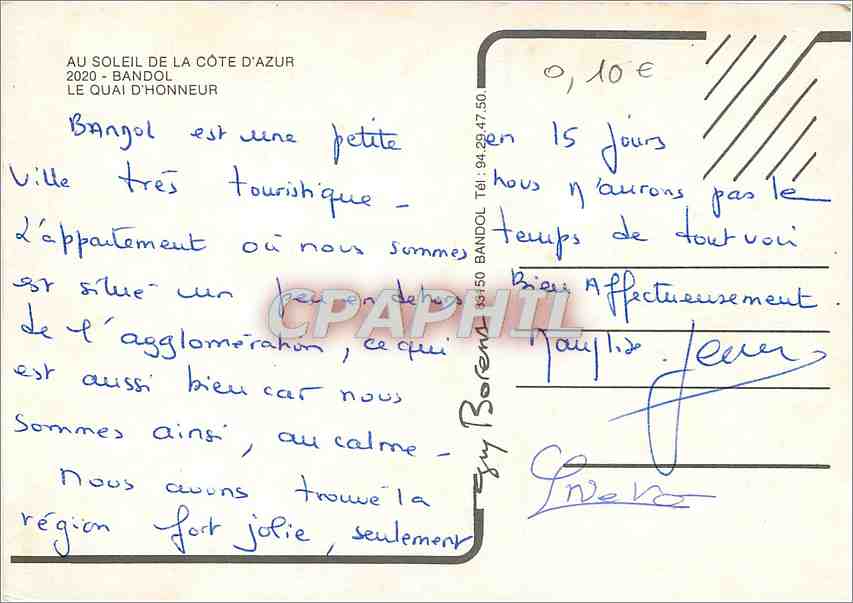 AU SOLEIL DE LA CÔTE D'AZUR
2020 - BANDOL
LE QUAI D'HONNEUR
Bandol est une petite
ville très touristique -
L'appartement où nous sommes
est situé un peu en dehors
de l'agglomération, ce qui
est aussi bien car nous
sommes ainsi, au calme -
Nous avons trouvé la
région fort jolie, seulement
0,10€
en 15 jours
nous n'aurons pas le
temps de tout voir
Bien Affectueusement
Jean
guy Borens 83150 BANDOL Tél : 94.29.47.50.
CPAPHIL